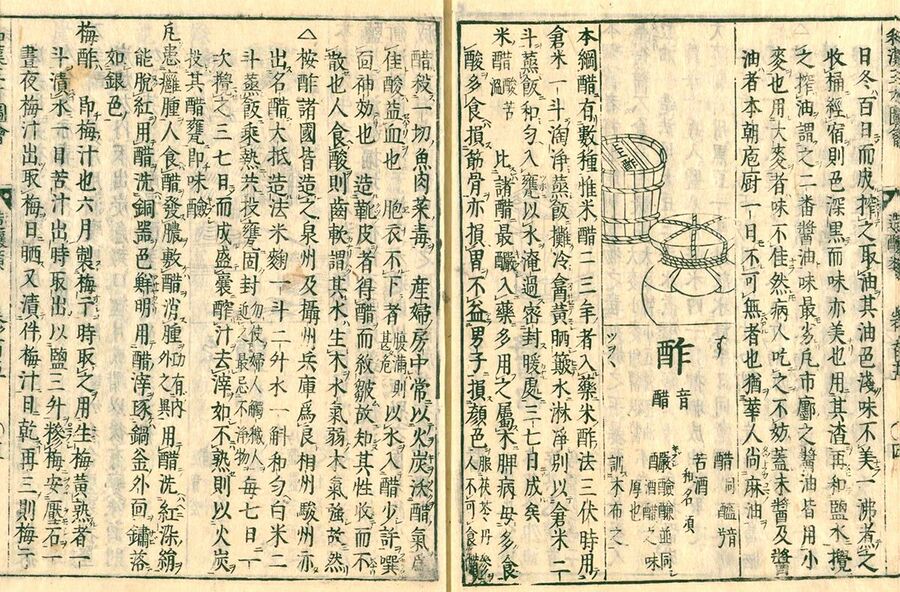 日冬百日而成搾之取油其油色淺味不美一沸者之
收桶經宿則色深黑而味亦美也用其渣再和鹽水攪
之搾油謂之二番醬油味最劣凡市鄽之醬油皆用小
麥也用大麥者味不佳然病人吃之不妨蓋未醬及醬
油者本朝庖厨一日不可無者也猶華人尚麻油
す
酢
音醋
ツヲヽ
醋
苦酒
和名須
酒醋之味
厚也
訓木布之
本綱醋有數種惟米醋二三年者入藥米酢法三伏時用
倉米一斗淘淨蒸飯攤冷盦黃晒簸水淋淨別以倉米二
斗蒸飯和勻入甕以水淹過密封暖處三七日成矣
米醋 酸苦溫 比諸醋最釅入藥多用之屬木脾病毋多食
酸多食損筋骨亦損胃不益男子損顏色 服茯苓丹參人不可食醋
醋殺一切魚肉菜毒 產婦房中常以火炭沃醋氣爲
佳酸益血也 胞衣不下者 腹滿則甚危 以水入醋少許噀
面神効也 造靴皮者得醋而紋皺故知其性收而不
散也人食酸則齒軟謂其水生木水氣弱木氣強故然
△按酢諸國皆造之泉州及攝州兵庫爲良相州駿州亦
出名醋大抵造法米麴一斗二升水一斛和勻白米二
斗蒸飯乘熱共投甕固封 勿使婦人觸穢人近之最忌不淨物 每七日一
次攪之三七日而成盛囊醡汁去滓如不熟則以火炭
投其醋甕即味醶
凡患癰腫人食醋發膿敷醋消腫 外功有異內 用醋洗紅染綿
能脫紅用醋洗銅器色鮮明用醋滓琢鍋釜外面鏽落
如銀色
梅酢 即梅汁也六月製梅干時取之用生梅黃熟者一
斗漬水一日苦汁出時取出以鹽三升摻梅安壓石一
晝夜梅汁出取梅日晒又漬件梅汁日乾再三則梅干